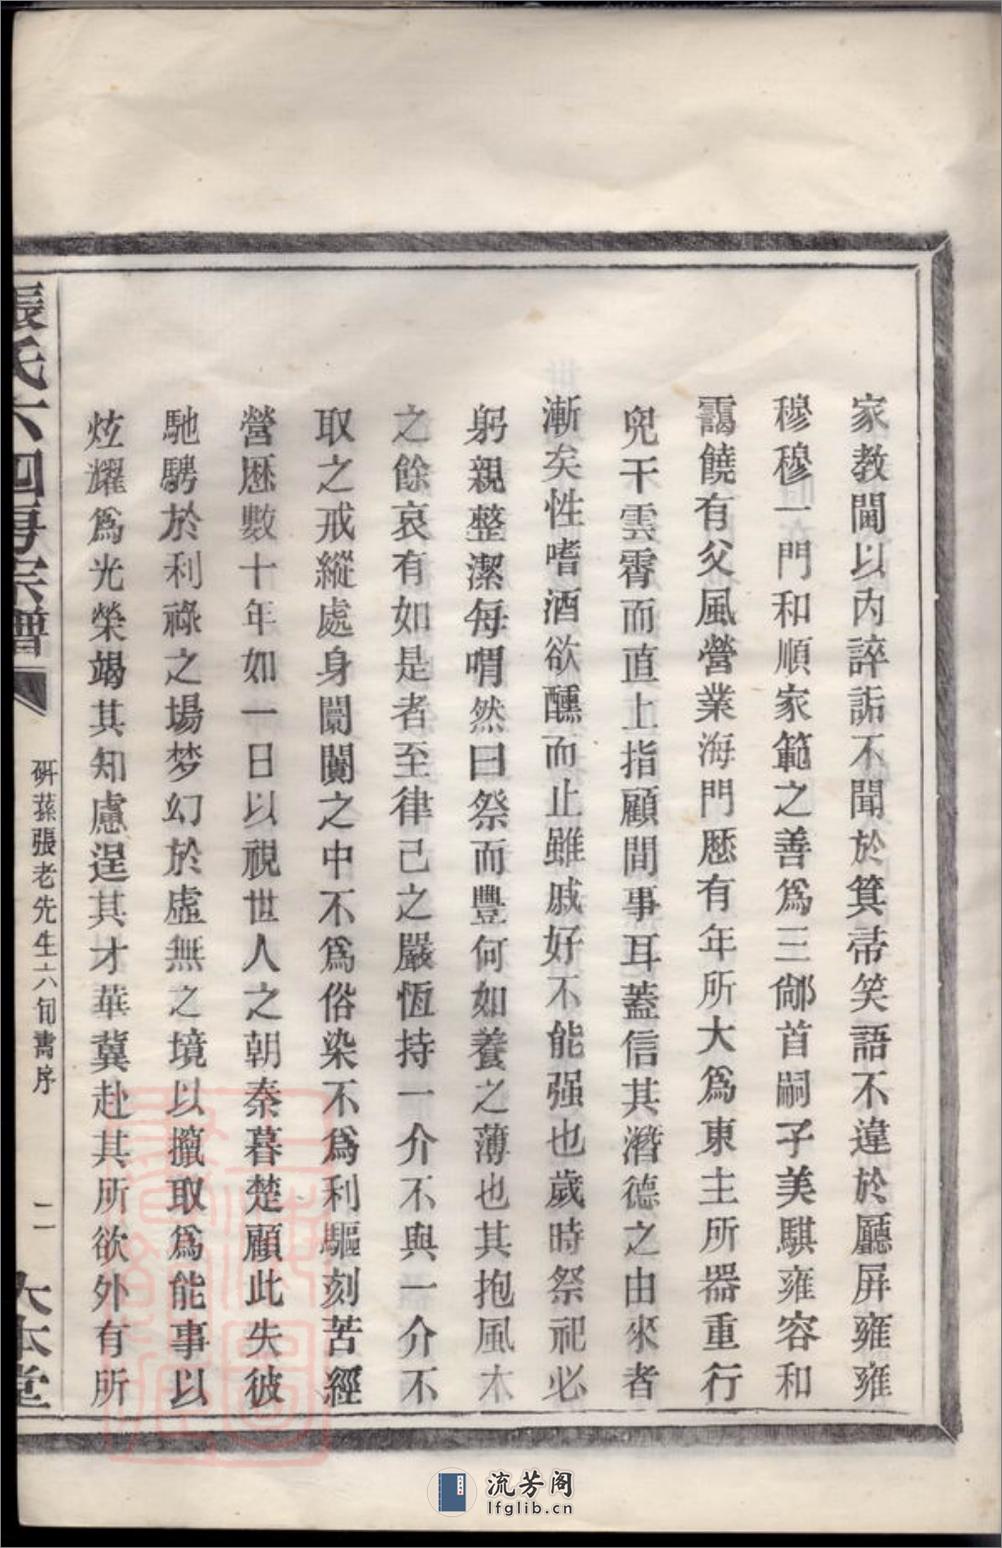 家教閫以內誶詬不聞於箕帚笑語不違於廳屏雍雍
穆穆一門和順家範之善爲三鄃首嗣子美騏雍容和
靄饒有父風營業海門歷有年所大爲東主所器重行
兒干雲霄而直上指顧間事耳蓋信其潛德之由來者
漸矣性嗜酒欲醺而止雖戚好不能强也歲時祭祀必
躬親整潔每喟然曰祭而豐何如養之薄也其抱風木
之餘哀有如是者至律己之嚴恆持一介不與一介不
取之戒縱處身闤闠之中不爲俗染不爲利驅刻苦經
營歷數十年如一日以視世人之朝秦暮楚顧此失彼
馳騁於利祿之場梦幻於虛無之境以擸取爲能事以
炫耀爲光榮竭其知慮逞其才華冀赴其所欲外有所
張氏六四房宗譜
硏蓀張老先生六旬壽序
二
大本堂
流芳阁
lfglib.cn